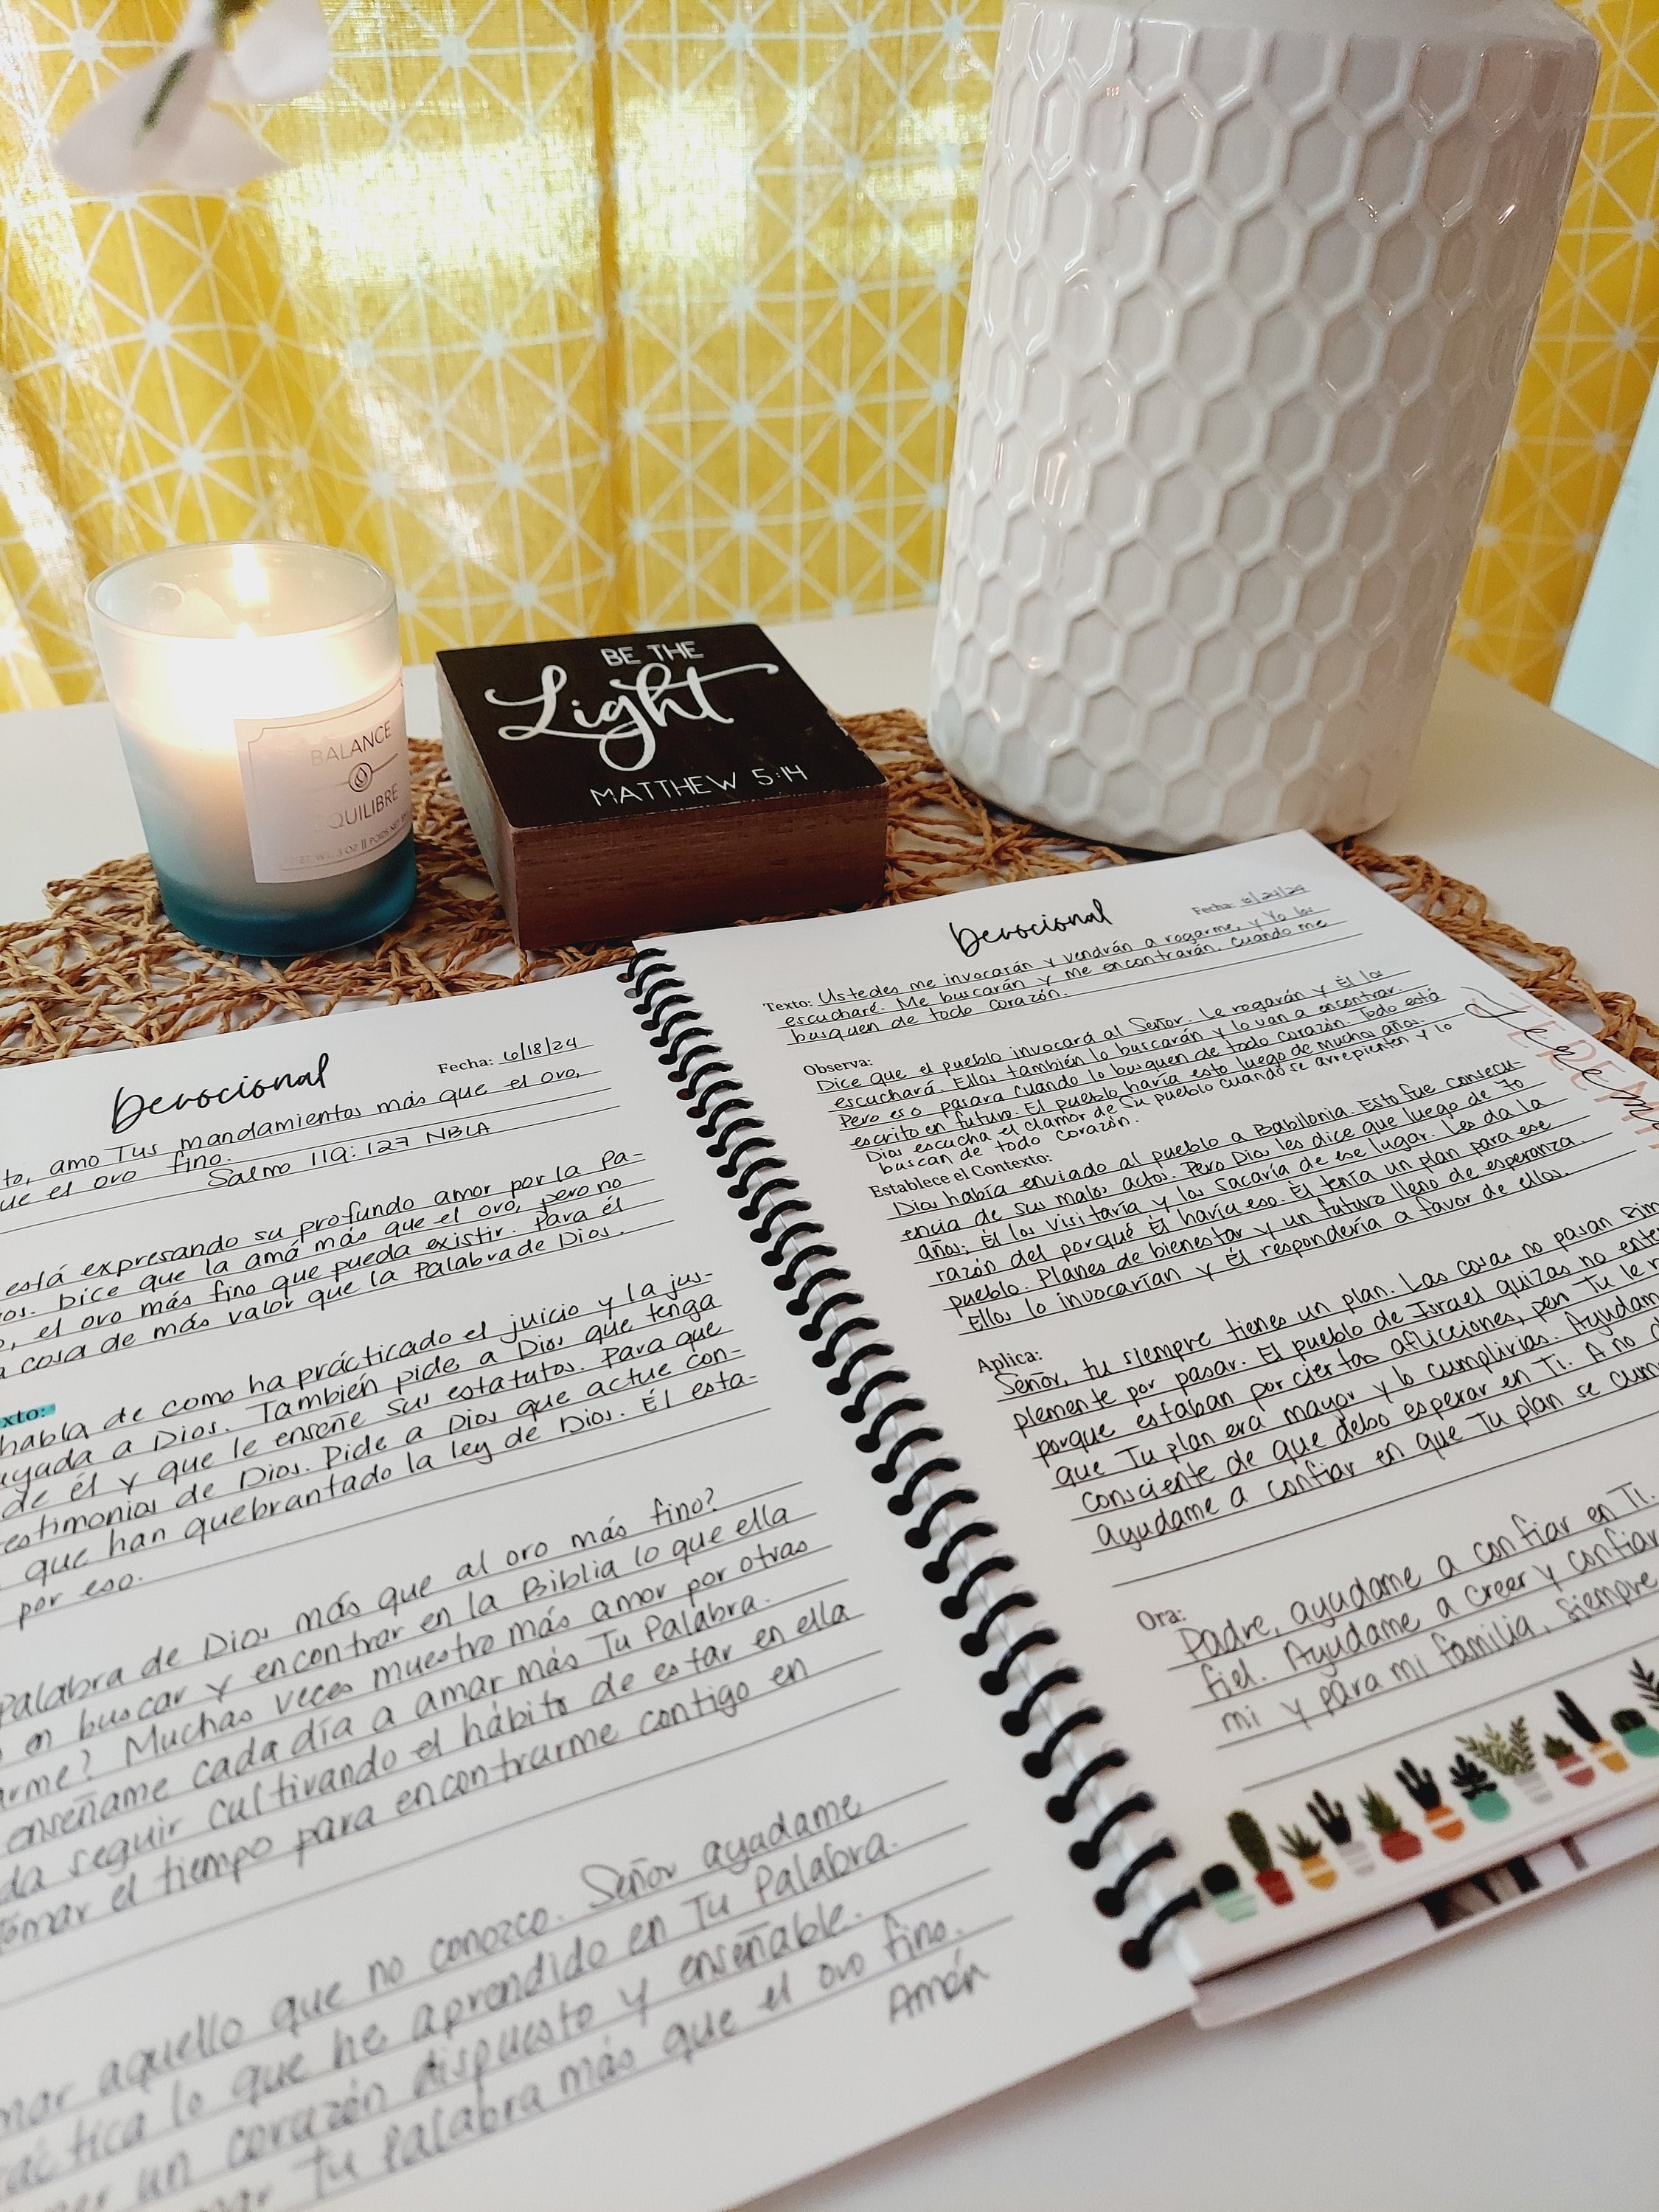 BALANCE
ÉQUILIBRE
BE THE
Light
MATTHEW 5:14
Devocional
Fecha: 6/18/24
to, amo Tus mandamientos más que el oro,
que el oro fino.
Salmo 119:127 NBLA
está expresando su profundo amor por la Pa-
Dice que la ama más que el oro, pero no
el oro más fino que pueda existir. Para él
cosa de más valor que la Palabra de Dios.
xto:
habla de como ha prácticado el juicio y la jus-
a Dios. También pide a Dios que tenga
de él y que le enseñe sus estatutos. Para que
testimonios de Dios. Pide a Dios que actue con-
que han quebrantado la ley de Dios. Él esta-
por eso.
Palabra de Dios más que al oro más fino?
en buscar y encontrar en la Biblia lo que ella
arme? Muchas veces muestro más amor por otras
enseñame cada día a amar más Tu Palabra.
da seguir cultivando el hábito de estar en ella
tomar el tiempo para encontrarme contigo en
aquello que no conozco. Señor ayudame
lo que he aprendido en Tu Palabra.
un corazón dispuesto y enseñable.
Tu Palabra más que el oro fino.
Amén
Devocional
Fecha: 6/24/24
Texto: Ustedes me invocarán y vendrán a rogarme, y Yo los
escucharé. Me buscarán y me encontrarán, cuando me
busquen de todo corazón.
Observa:
Dice que el pueblo invocará al Señor. Le rogarán y Él los
escuchará. Ellos también lo buscarán y lo van a encontrar.
Pero eso pasara cuando lo busquen de todo corazón. Todo está
escrito en futuro. El pueblo haría esto luego de muchos años.
Dios escucha el clamor de Su pueblo cuando se arrepienten y lo
buscan de todo corazón.
Establece el Contexto:
Dios había enviado al pueblo a Babilonia. Esto fue consecu-
encia de sus malos actos. Pero Dios les dice que luego de 70
años; Él los visitaría y los sacaría de ese lugar. Les da la
razón del porqué Él haría eso. Él tenía un plan para ese
pueblo. Planes de bienestar y un futuro lleno de esperanza.
Ellos lo invocarían y Él respondería a favor de ellos.
Aplica:
Señor, tu siempre tienes un plan. Las cosas no pasan sim
plemente por pasar. El pueblo de Israel quizas no ente
porque estaban por ciertas aflicciones, pero Tu le
que Tu plan era mayor y lo cumplirias. Ayudam
consciente de que debo esperar en Ti. A no
ayudame a confiar en que Tu plan se cum
Ora:
Padre, ayudame a confiar en Ti.
fiel. Ayudame a creer y confiar
mi y para mi familia, siempre